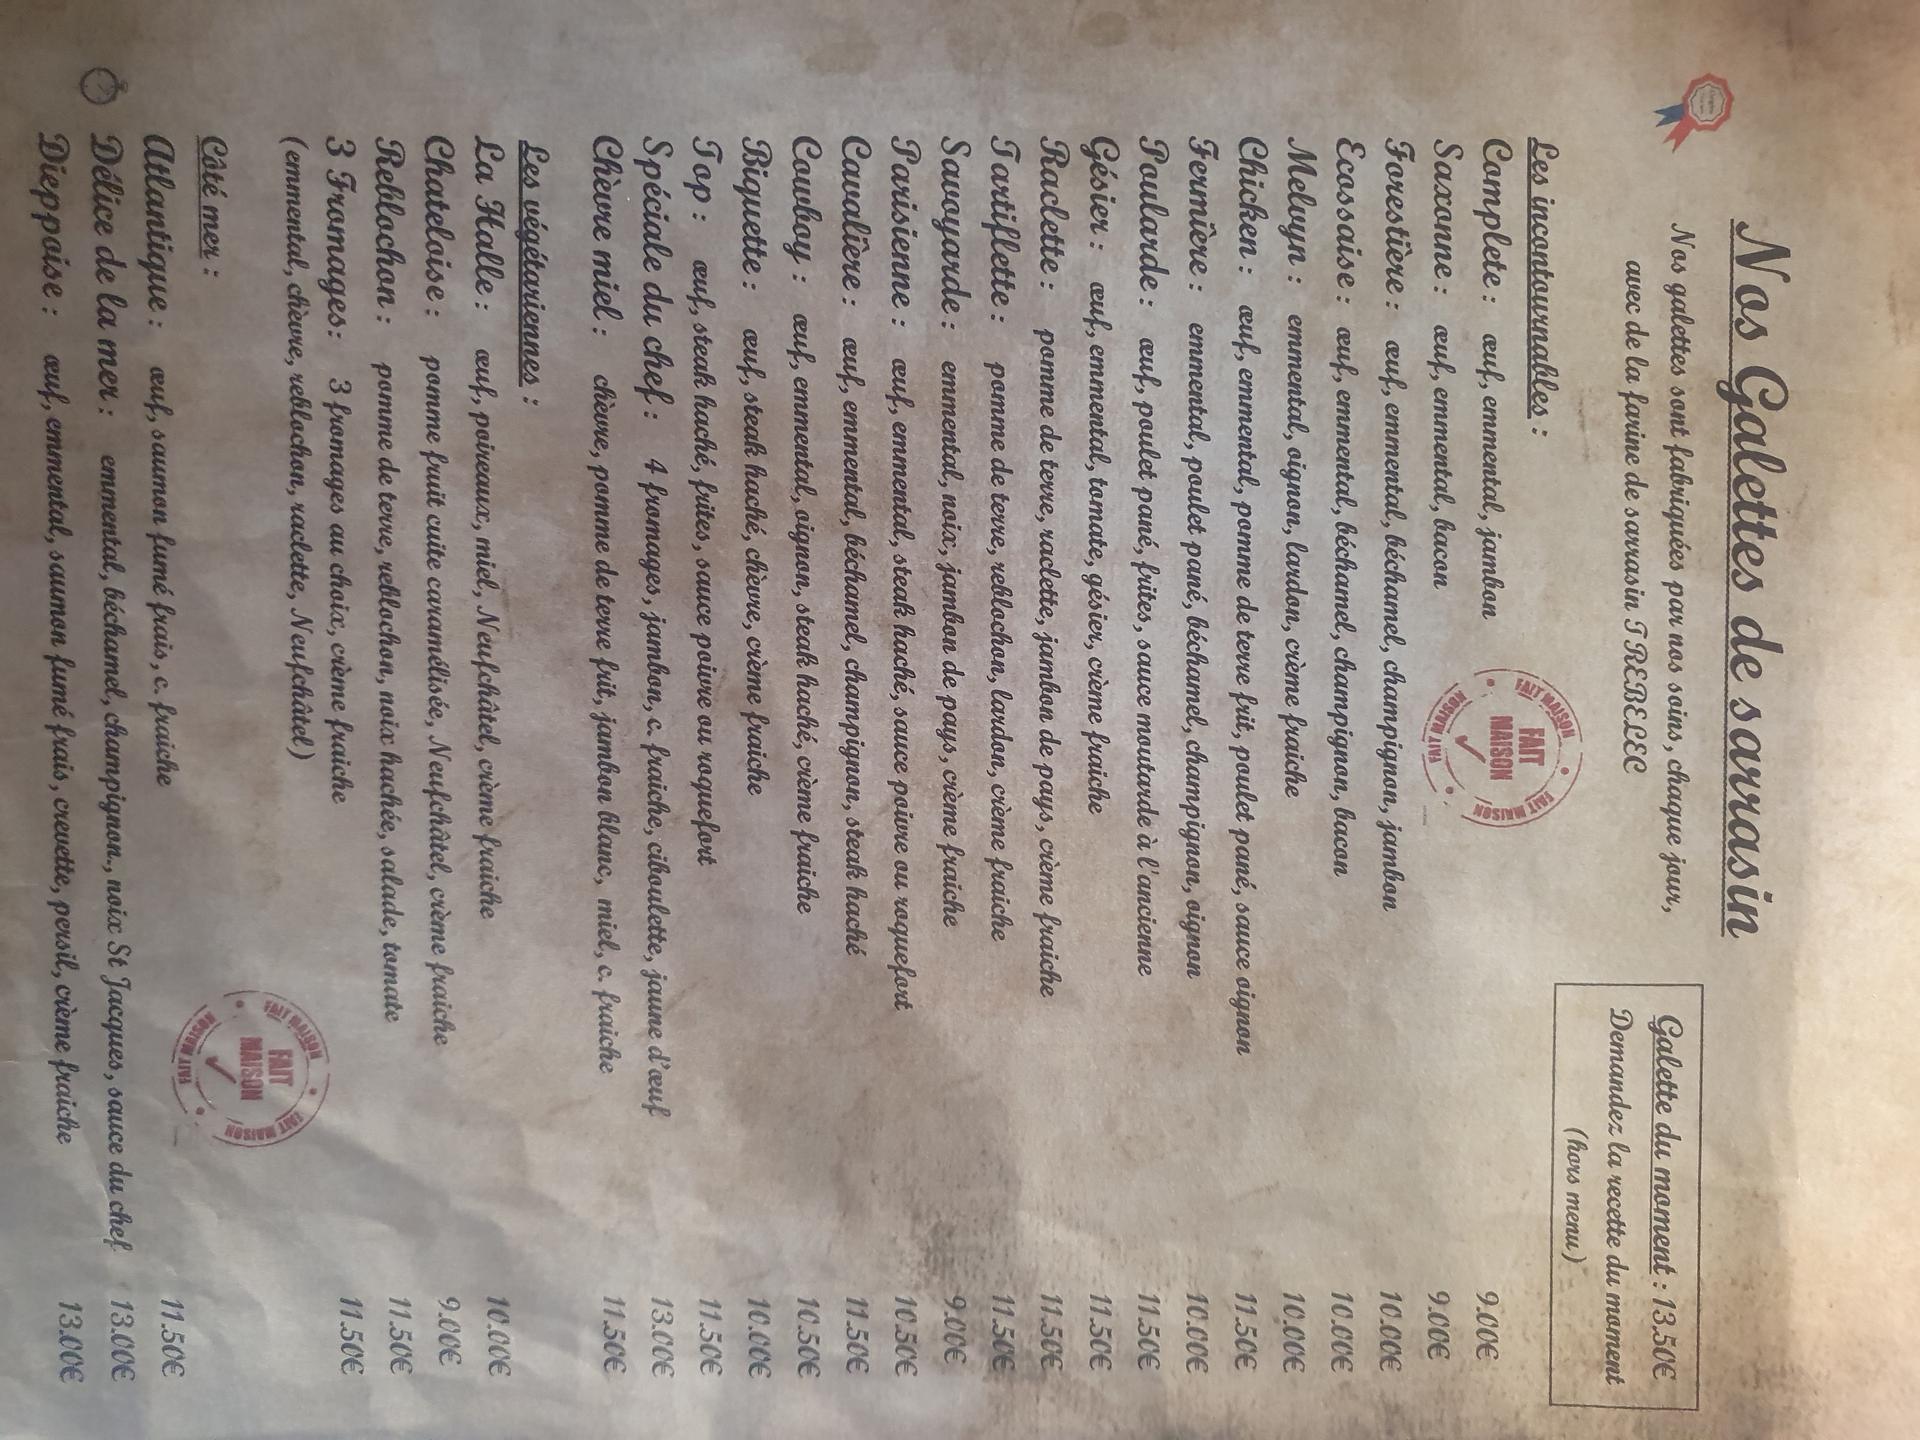 Nos Galettes de sarrasin
Nos galettes sont fabriquées par nos soins, chaque jour,
avec de la farine de sarrasin TREBELEC
Galette du moment : 13.50€
Demandez la recette du moment
(hors menu)
Les incontournables :
FAIT MAISON
FAIT
MAISON
FAIT MAISON
FAIT MAISON
Complete : œuf, emmental, jambon 9.00€
Saxonne : œuf, emmental, bacon 9.00€
Forestière : œuf, emmental, béchamel, champignon, jambon 10.00€
Ecossaise : œuf, emmental, béchamel, champignon, bacon 10.00€
Melwyn : emmental, oignon, lardon, crème fraiche 10.00€
Chicken : œuf, emmental, pomme de terre frit, poulet pané, sauce oignon 11.50€
Fermière : emmental, poulet pané, béchamel, champignon, oignon 10.00€
Poularde : œuf, poulet pané, frites, sauce moutarde à l'ancienne 11.50€
Gésier : œuf, emmental, tomate, gésier, crème fraiche 11.50€
Raclette : pomme de terre, raclette, jambon de pays, crème fraiche 11.50€
Tartiflette : pomme de terre, reblochon, lardon, crème fraiche 11.50€
Savoyarde : emmental, noix, jambon de pays, crème fraiche 9.00€
Parisienne : œuf, emmental, steak haché, sauce poivre ou roquefort 10.50€
Cavalière : œuf, emmental, béchamel, champignon, steak haché 11.50€
Cowboy : œuf, emmental, oignon, steak haché, crème fraiche 10.50€
Biquette : œuf, steak haché, chèvre, crème fraiche 10.00€
Top : œuf, steak haché, frites, sauce poivre ou roquefort 11.50€
Spéciale du chef : 4 fromages, jambon, c. fraiche, ciboulette, jaune d'œuf 13.00€
Chèvre miel : chèvre, pomme de terre frit, jambon blanc, miel, c. fraiche 11.50€
Les végétariennes :
La Halle : œuf, poireaux, miel, Neufchâtel, crème fraiche 10.00€
Chateloise : pomme fruit cuite caramélisée, Neufchâtel, crème fraiche 9.00€
Reblochon : pomme de terre, reblochon, noix hachée, salade, tomate 11.50€
3 Fromages: 3 fromages au choix, crème fraiche 11.50€
(emmental, chèvre, reblochon, raclette, Neufchâtel)
FAIT MAISON
FAIT
MAISON
FAIT MAISON
FAIT MAISON
Côté mer :
Atlantique : œuf, saumon fumé frais, c. fraiche 11.50€
Délice de la mer : emmental, béchamel, champignon, noix St Jacques, sauce du chef 13.00€
Dieppoise : œuf, emmental, saumon fumé frais, crevette, persil, crème fraiche 13.00€